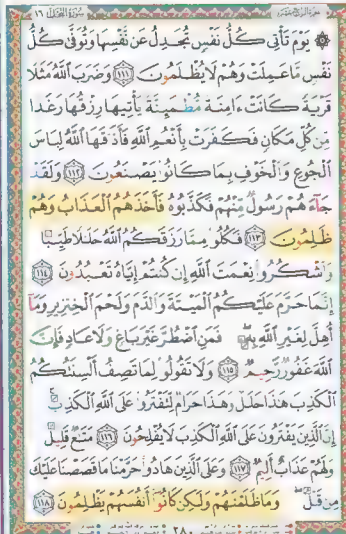 سورة النحل ١٦
۞ يَوْمَ تَأْتِي كُلُّ نَفْسٍ تُجَٰدِلُ عَن نَّفْسِهَا وَتُوَفَّىٰ كُلُّ
نَفْسٍ مَّا عَمِلَتْ وَهُمْ لَا يُظْلَمُونَ ﴿١١١﴾ وَضَرَبَ ٱللَّهُ مَثَلًا
قَرْيَةً كَانَتْ ءَامِنَةً مُّطْمَئِنَّةً يَأْتِيهَا رِزْقُهَا رَغَدًا
مِّن كُلِّ مَكَانٍ فَكَفَرَتْ بِأَنْعُمِ ٱللَّهِ فَأَذَٰقَهَا ٱللَّهُ لِبَاسَ
ٱلْجُوعِ وَٱلْخَوْفِ بِمَا كَانُوا۟ يَصْنَعُونَ ﴿١١٢﴾ وَلَقَدْ
جَآءَهُمْ رَسُولٌ مِّنْهُمْ فَكَذَّبُوهُ فَأَخَذَهُمُ ٱلْعَذَابُ وَهُمْ
ظَٰلِمُونَ ﴿١١٣﴾ فَكُلُوا۟ مِمَّا رَزَقَكُمُ ٱللَّهُ حَلَٰلًا طَيِّبًا
وَٱشْكُرُوا۟ نِعْمَتَ ٱللَّهِ إِن كُنتُمْ إِيَّاهُ تَعْبُدُونَ ﴿١١٤﴾
إِنَّمَا حَرَّمَ عَلَيْكُمُ ٱلْمَيْتَةَ وَٱلدَّمَ وَلَحْمَ ٱلْخِنزِيرِ وَمَآ
أُهِلَّ لِغَيْرِ ٱللَّهِ بِهِۦ ۖ فَمَنِ ٱضْطُرَّ غَيْرَ بَاغٍ وَلَا عَادٍ فَإِنَّ
ٱللَّهَ غَفُورٌ رَّحِيمٌ ﴿١١٥﴾ وَلَا تَقُولُوا۟ لِمَا تَصِفُ أَلْسِنَتُكُمُ
ٱلْكَذِبَ هَٰذَا حَلَٰلٌ وَهَٰذَا حَرَامٌ لِّتَفْتَرُوا۟ عَلَى ٱللَّهِ ٱلْكَذِبَ ۚ
إِنَّ ٱلَّذِينَ يَفْتَرُونَ عَلَى ٱللَّهِ ٱلْكَذِبَ لَا يُفْلِحُونَ ﴿١١٦﴾ مَتَٰعٌ قَلِيلٌ
وَلَهُمْ عَذَابٌ أَلِيمٌ ﴿١١٧﴾ وَعَلَى ٱلَّذِينَ هَادُوا۟ حَرَّمْنَا مَا قَصَصْنَا عَلَيْكَ
مِن قَبْلُ ۖ وَمَا ظَلَمْنَٰهُمْ وَلَٰكِن كَانُوٓا۟ أَنفُسَهُمْ يَظْلِمُونَ ﴿١١٨﴾
٢٨٠